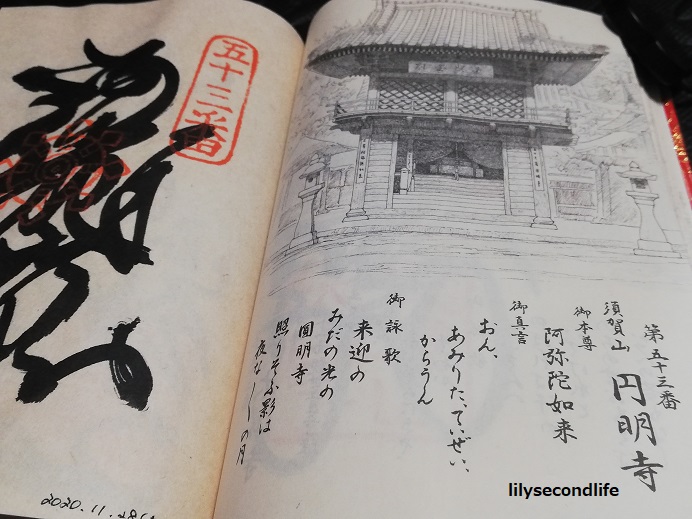 第五十三番
須賀山 円明寺
御本尊
阿弥陀如来
御真言
おん、
あみりた、ていぜい、
からうん
御詠歌
来迎の
みだの光の
圓明寺
照りそふ影は
夜な〱の月
五十三番
2020.11.28(
lilysecondlife